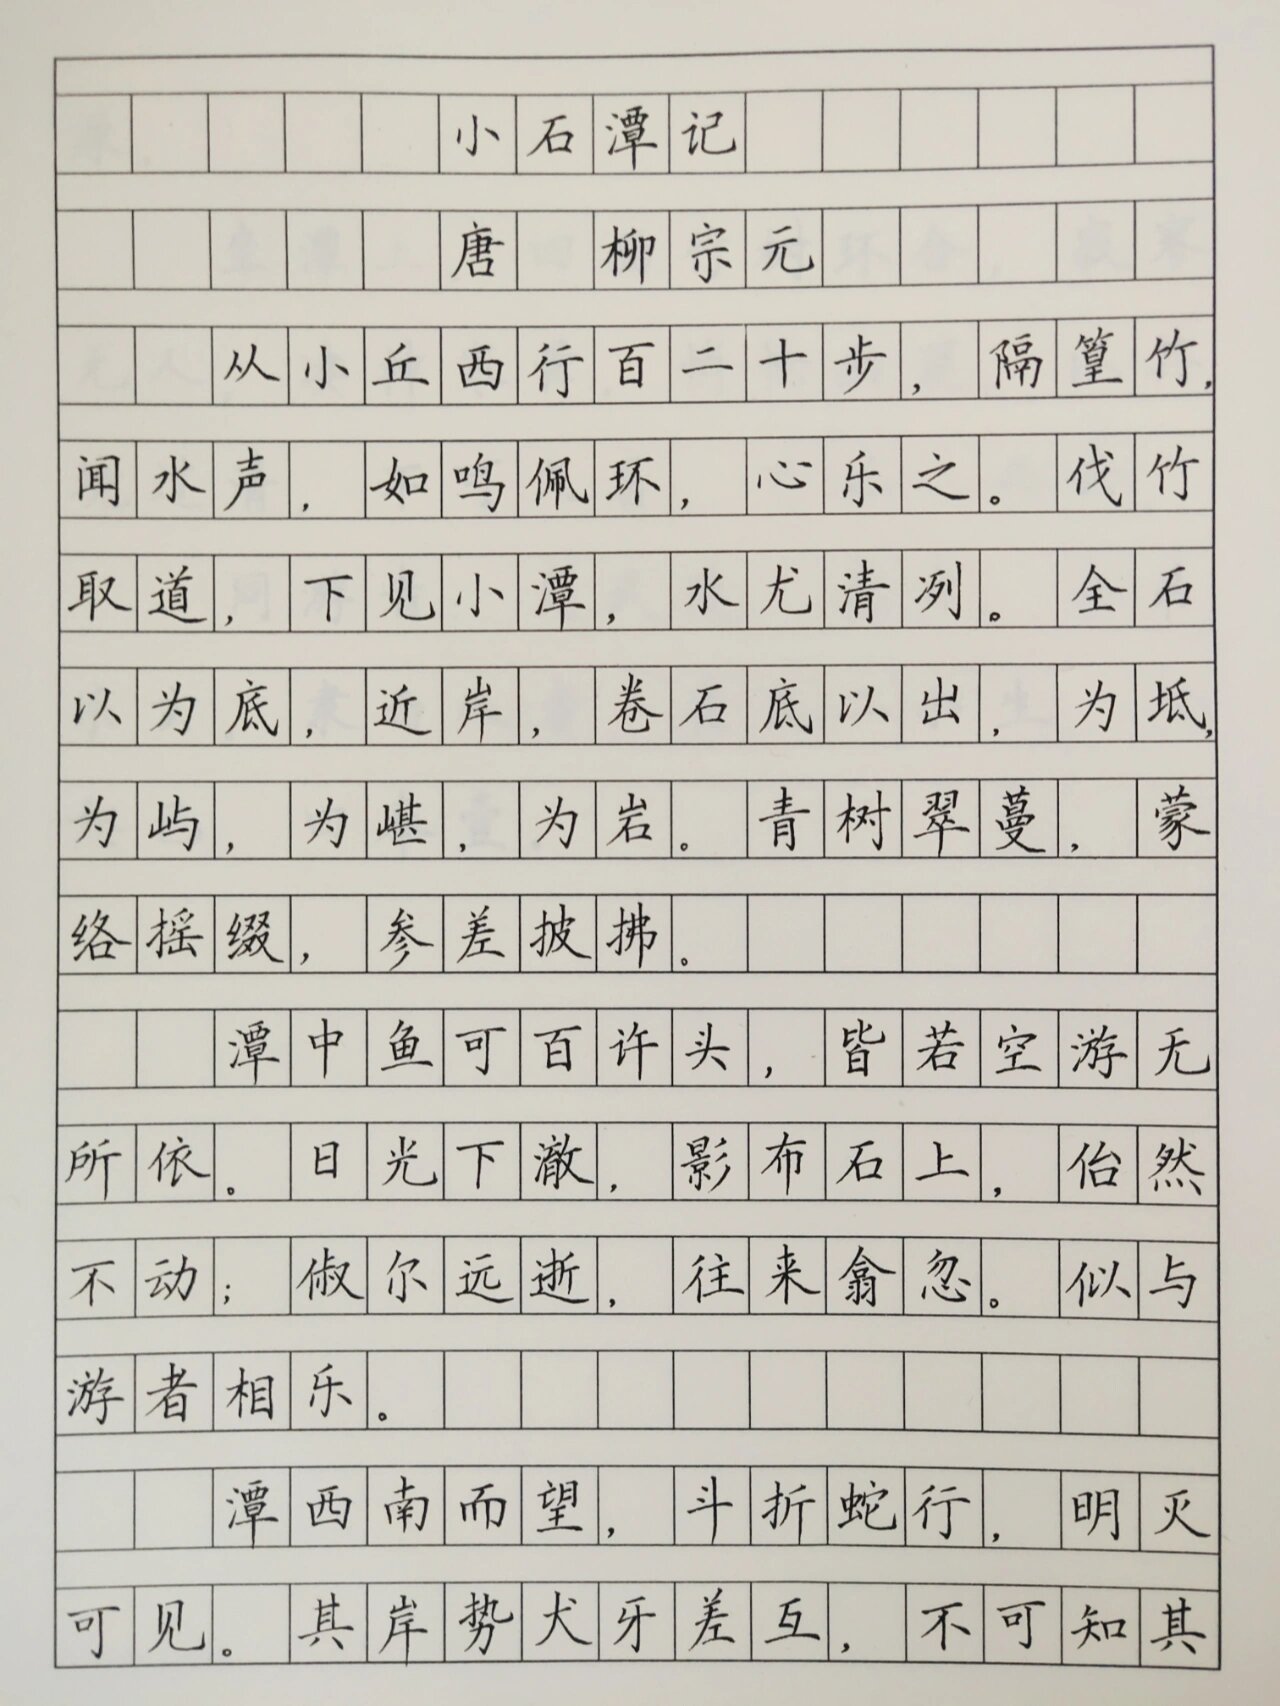 小石潭记
唐 柳宗元
从小丘西行百二十步，隔篁竹，
闻水声，如鸣佩环，心乐之。伐竹
取道，下见小潭，水尤清冽。全石
以为底，近岸，卷石底以出，为坻，
为屿，为嵁，为岩。青树翠蔓，蒙
络摇缀，参差披拂。
潭中鱼可百许头，皆若空游无
所依。日光下澈，影布石上，佁然
不动；俶尔远逝，往来翕忽。似与
游者相乐。
潭西南而望，斗折蛇行，明灭
可见。其岸势犬牙差互，不可知其